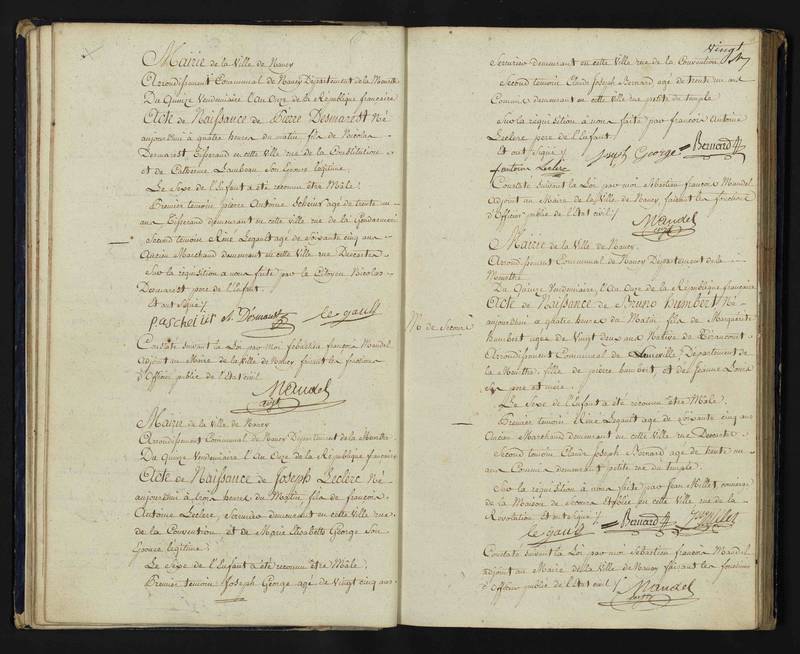 Mairie de la Ville de Nancy
Arrondissement Communal de Nancy Département de la Meurthe
Du Quinze Vendemiaire l'An Onze de la République française
Acte de Naissance de Pierre Desmarest Né
aujourdhui à quatre heures du matin fils de Nicolas
Desmarest Tisserand en cette Ville rue de la Constitution
et de Catherine Son Epouse légitime.
Le Sexe de l'Enfant a été reconnu être Mâle.
Premier temoin pierre Antoine agé de trente un
ans Tisserand demeurant en cette Ville rue de la
Second temoin Réné Legault agé de soixante cinq ans
Ancien Marchand demeurant en cette Ville rue Descartes
Sur la réquisition a nous faite par le Citoyen Nicolas
Desmarest pere de l'Enfant.
Et ont signé
le gault
Constaté suivant la Loi par moi Sébastien françois Mandel
adjoint au Maire de la Ville de Nancy faisant les fonctions
d'Officier public de l'Etat civil
Mandel
adjt
Mairie de la Ville de Nancy
Arrondissement Communal de Nancy Département de la Meurthe.
Du Quinze Vendemiaire l'An Onze de la République française
Acte de Naissance de Joseph Leclerc Né
aujourdhui à trois heures du Matin fils de françois
Antoine Leclerc, Serrurier demeurant en cette Ville rue
de la Convention, et de Marie Elisabeth George Son
Epouse légitime.
Le Sexe de l'Enfant a été reconnu être Mâle.
Premier temoin Joseph George agé de Vingt cinq ans
Vingt
Serrurier demeurant en cette Ville rue de la Convention
Second temoin Claude Joseph Bernard agé de trente un ans
Commis demeurant en cette Ville rue petite du temple.
Sur la réquisition à nous faite par françois Antoine
Leclerc pere de l'Enfant.
Et ont Signé
Joseph George Bernard
Leclerc
Constaté suivant la Loi par moi Sébastien françois Mandel
Adjoint au Maire de la Ville de Nancy, faisant les fonctions
d'Officier public de l'Etat civil
Mandel
adjt
Mairie de la Ville de Nancy.
Arrondissement Communal de Nancy Département de la
Meurthe
Du Quinze Vendemiaire, l'An Onze de la République française
Acte de Naissance de Bruno Humbert Né
aujourdhui a quatre heures du Matin fils de Marguerite
M. de Secours
Humbert agée de Vingt deux ans Native de
Arrondissement Communal de Luneville, Département de
la Meurthe, fille de pierre humbert, et de Jeanne
Ses pere et mere.
Le Sexe de l'Enfant a été reconnu être Mâle.
Premier temoin Réné Legault agé de Soixante cinq ans
Ancien Marchand demeurant en cette Ville rue Descartes
Second temoin Claude Joseph Bernard agé de trente un
ans Commis demeurant petite rue du temple.
Sur la réquisition à nous faite par Jean Millet concierge
de la Maison de Secours établie en cette Ville rue de la
Révolution Et ont signé
le gault Bernard Millet
Constaté suivant la Loi par moi Sébastien françois Mandel
adjoint au Maire de la Ville de Nancy faisant les fonctions
d'Officier public de l'Etat civil
Mandel
adjt